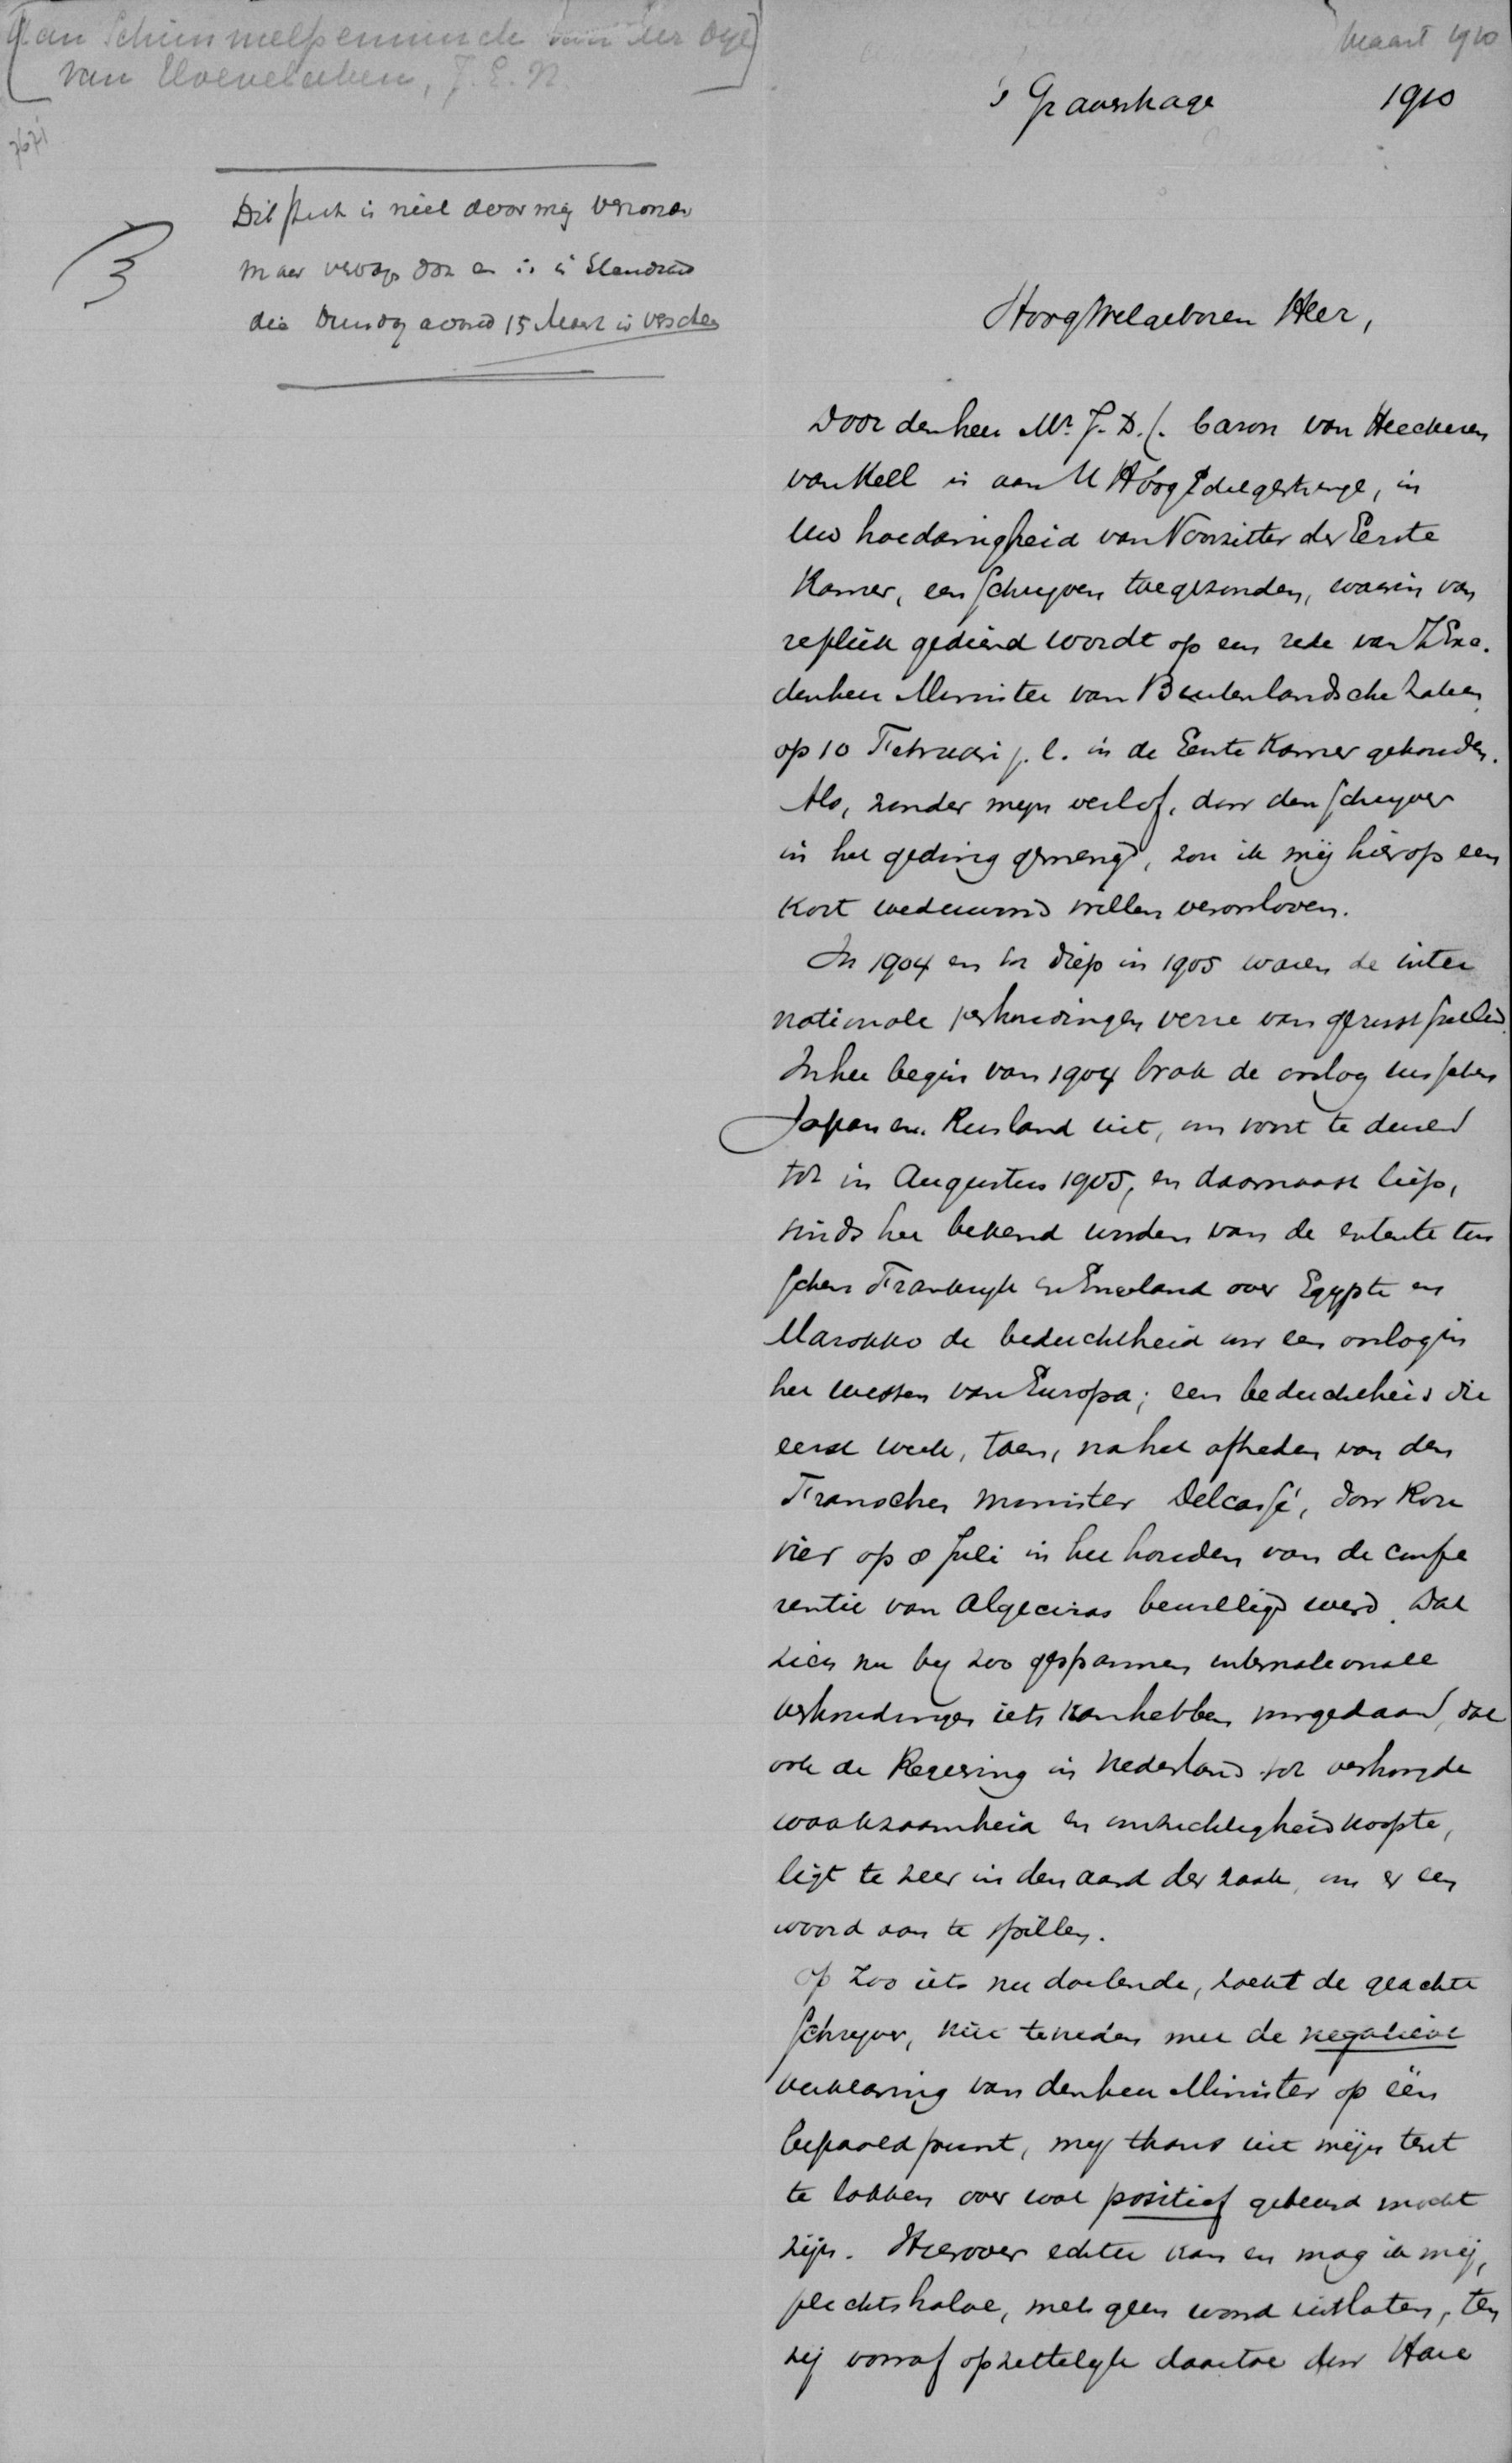 [Aan Schimmelpenninck van der Oye]
van Hoevelaken, J.E.N.
Maart 1910
's Gravenhage 1910
Dit stuk is niet door mij verzonden
maar vervangen door en is in Standaard
die Dinsdag avond 15 Maart is verschenen
HoogWelgeboren Heer,
Door den heer Mr. J. D. C. baron van Heeckeren
van Kell is aan U HoogEdelgestrenge, in
Uw hoedanigheid van Voorzitter der Eerste
Kamer, een schrijven toegezonden, waarin van
repliek gediend wordt op een rede van Z Exc.
den heer Minister van Buitenlandsche Zaken
op 10 Februari j.l. in de Eerste Kamer gehouden.
Als, zonder mijn verlof, door den schrijver
in het geding gemengd, zou ik mij hierop een
kort wederwoord willen veroorloven.
In 1904 en tot diep in 1905 waren de inter
nationale verhoudingen verre van geruststellend.
In het begin van 1904 brak de oorlog tusschen
Japan en Rusland uit, om voort te duren
tot in Augustus 1905, en daarnaast liep,
sinds het bekend worden van de entente tus
schen Frankrijk en Engeland over Egypte en
Marokko de beduchtheid voor een oorlog in
het westen van Europa; een beduchtheid die
eerst week, toen, na het aftreden van den
Franschen minister Delcassé, door Rou
vier op 8 Juli in het houden van de confe
rentie van Algeciras bewilligd werd. Dat
zich nu bij zoo gespannen internationale
verhoudingen iets kan hebben voorgedaan, dat
ook de Regering in Nederland tot verhoogde
waakzaamheid en omzichtigheid noopte,
ligt te zeer in den aard der zaak, om er een
woord aan te spillen.
Op zoo iets nu doelende, zoekt de geachte
schrijver, niet tevreden met de negatieve
verklaring van den heer Minister op één
bepaald punt, mij thans uit mijn tent
te lokken over wat positief gebeurd mocht
zijn. Hierover echter kan en mag ik mij,
plichtshalve, met geen woord uitlaten, ten
zij vooraf opzettelijk daartoe door Hare